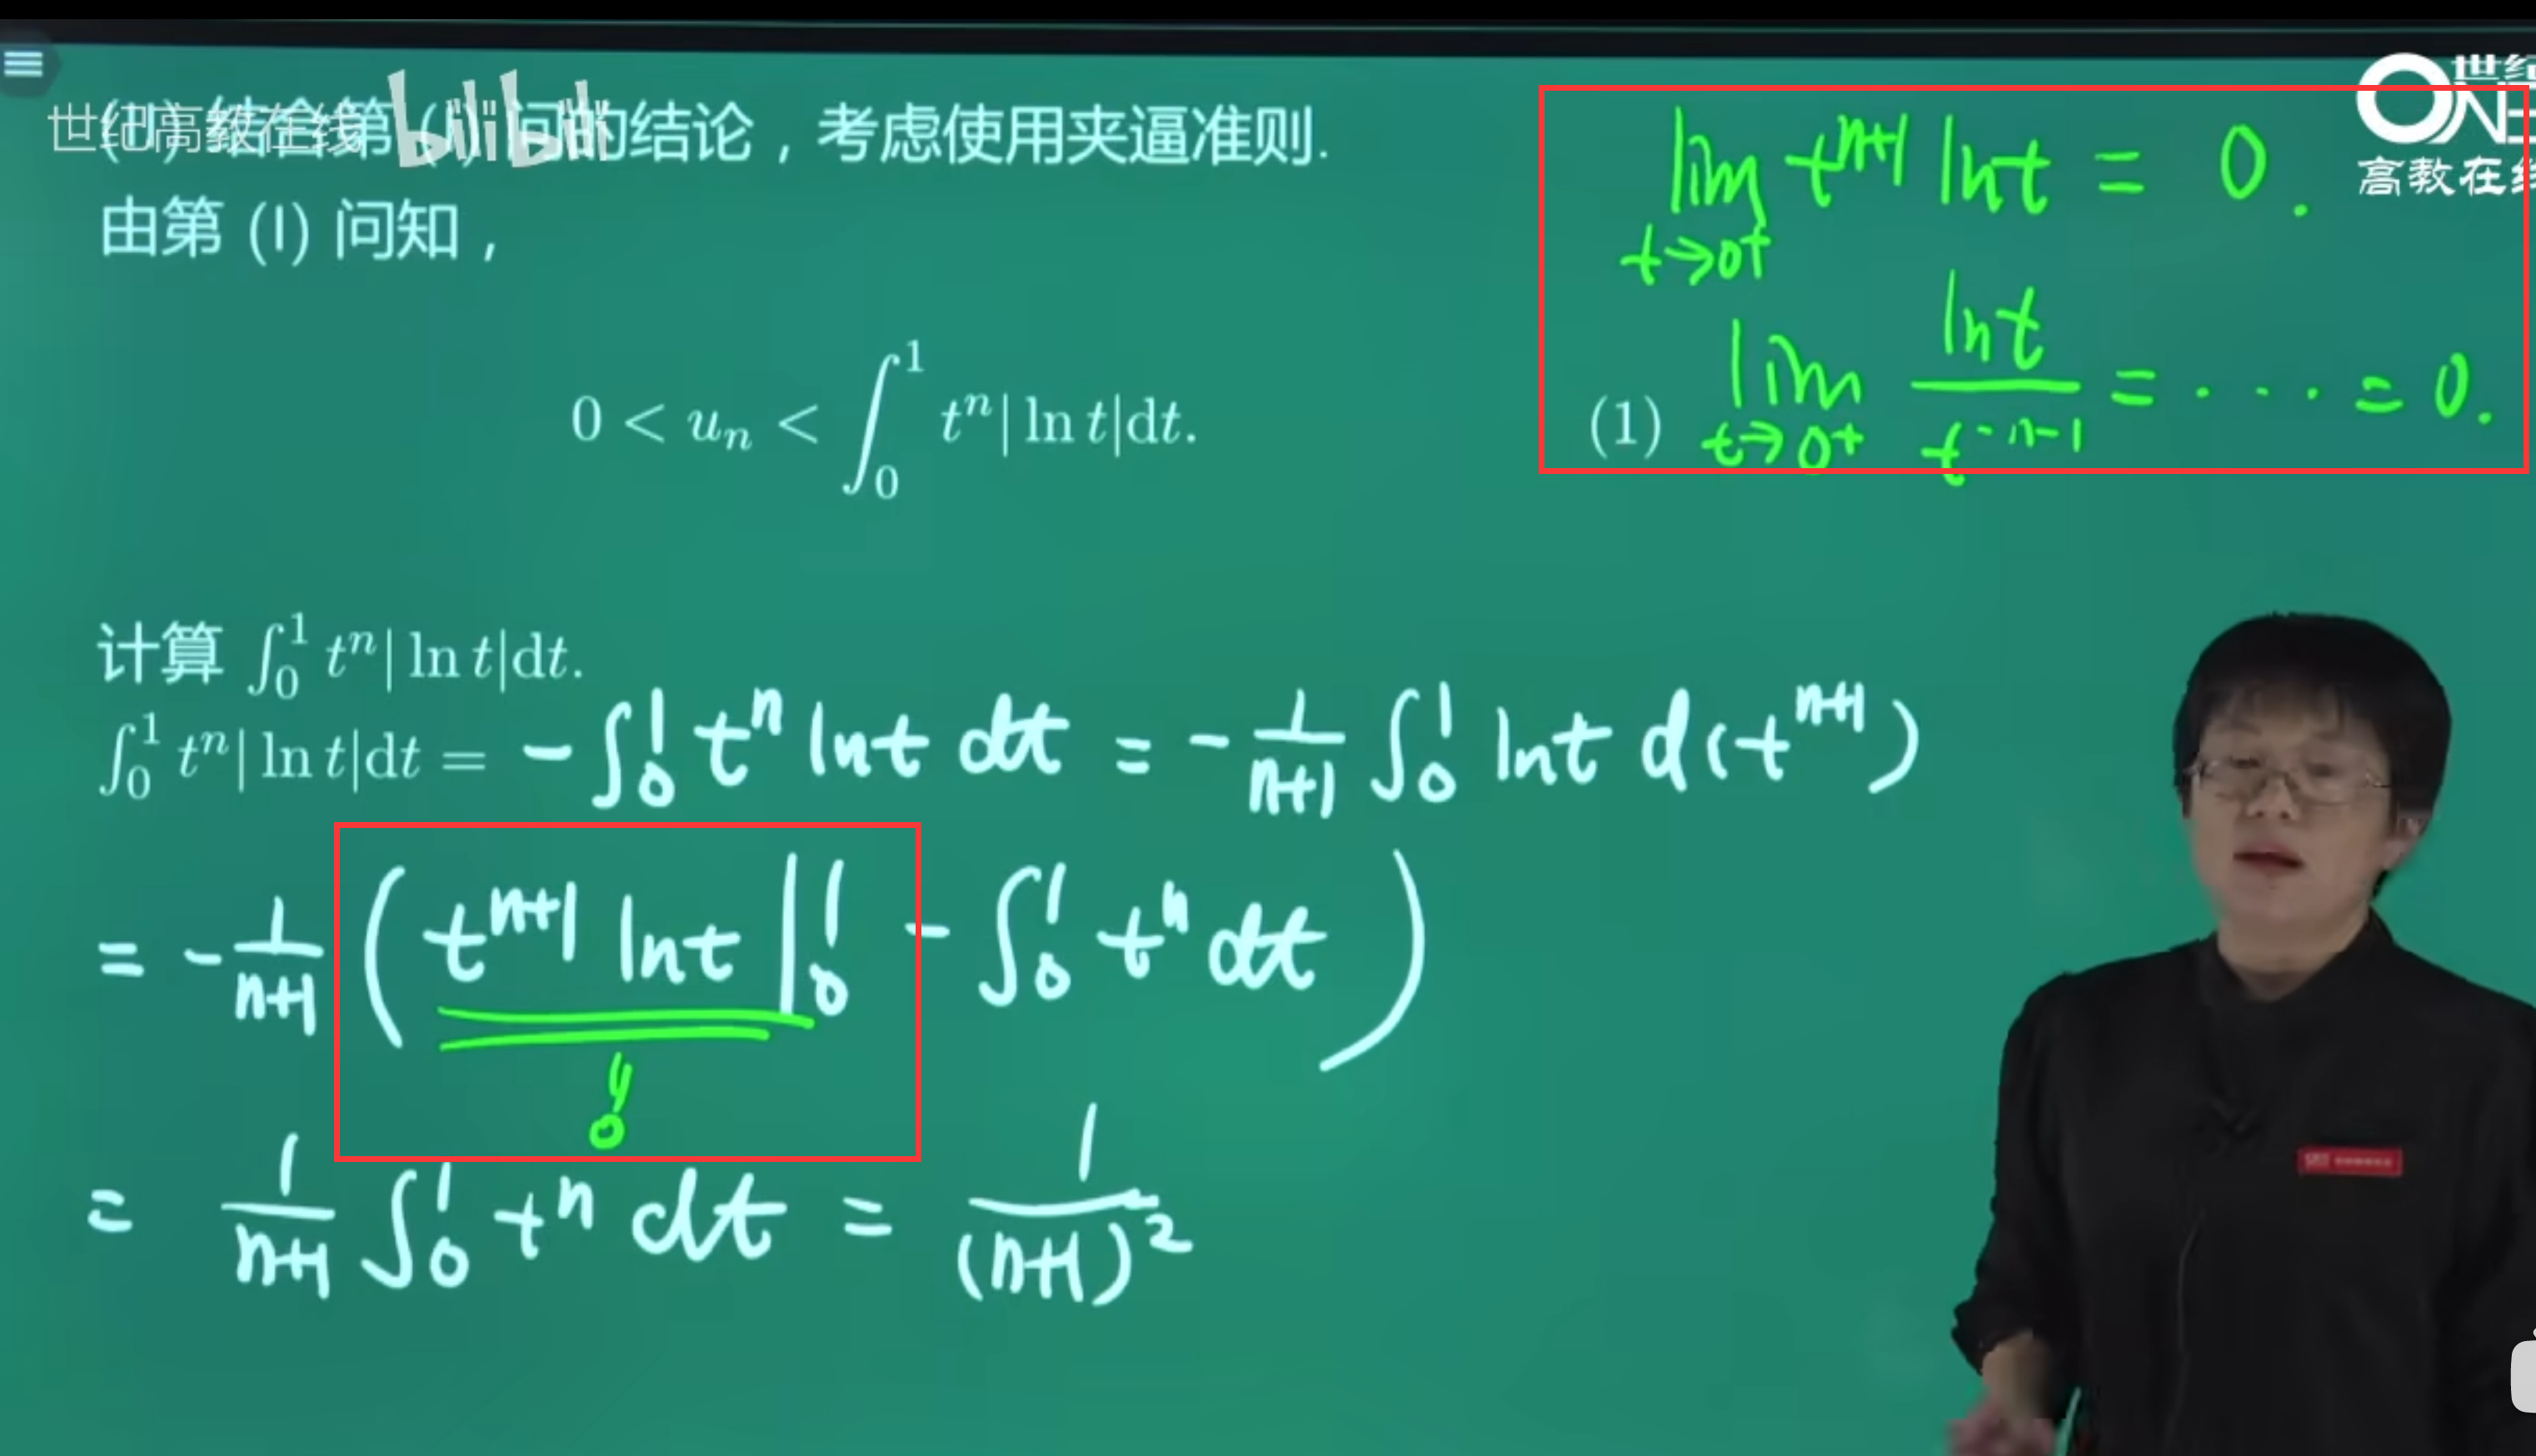 世纪高教在线 bilibili
(II) 结合第 (I) 问的结论，考虑使用夹逼准则.
由第 (I) 问知，
0 < uₙ < ∫₀¹ tⁿ| ln t|dt. (1)
lim_{t→0⁺} tⁿ⁺¹ ln t = 0.
lim_{t→0⁺} ln t / t⁻ⁿ⁻¹ = ···· = 0.
ONE
高教在线
计算 ∫₀¹ tⁿ| ln t|dt.
∫₀¹ tⁿ| ln t|dt = − ∫₀¹ tⁿ ln t dt = − 1/(n+1) ∫₀¹ ln t d(tⁿ⁺¹)
= − 1/(n+1) ( tⁿ⁺¹ ln t |₀¹ − ∫₀¹ tⁿ dt )
0
= 1/(n+1) ∫₀¹ tⁿ dt = 1/(n+1)²